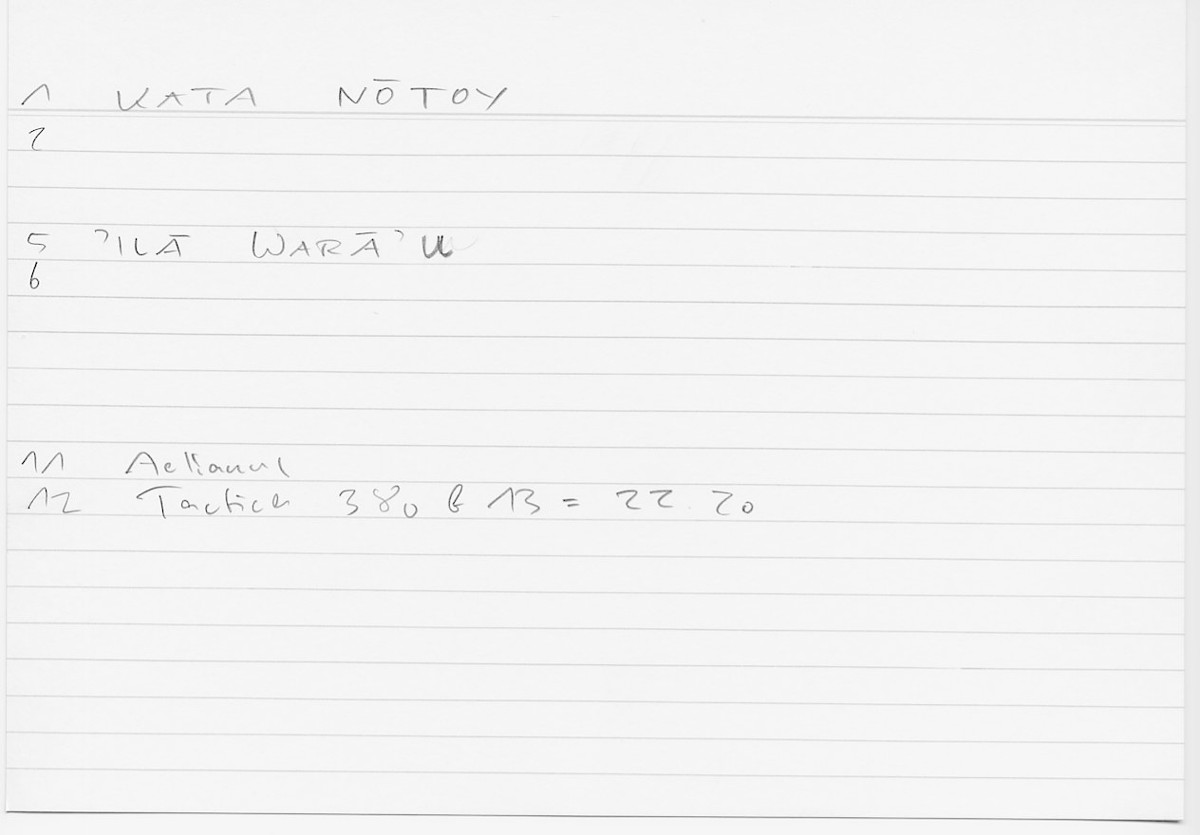 1 KATA NŌTOY
2
5 ʾILĀ WARĀʾU
6
11 Aelianus
12 Tactica 380 b 13 = 22.20